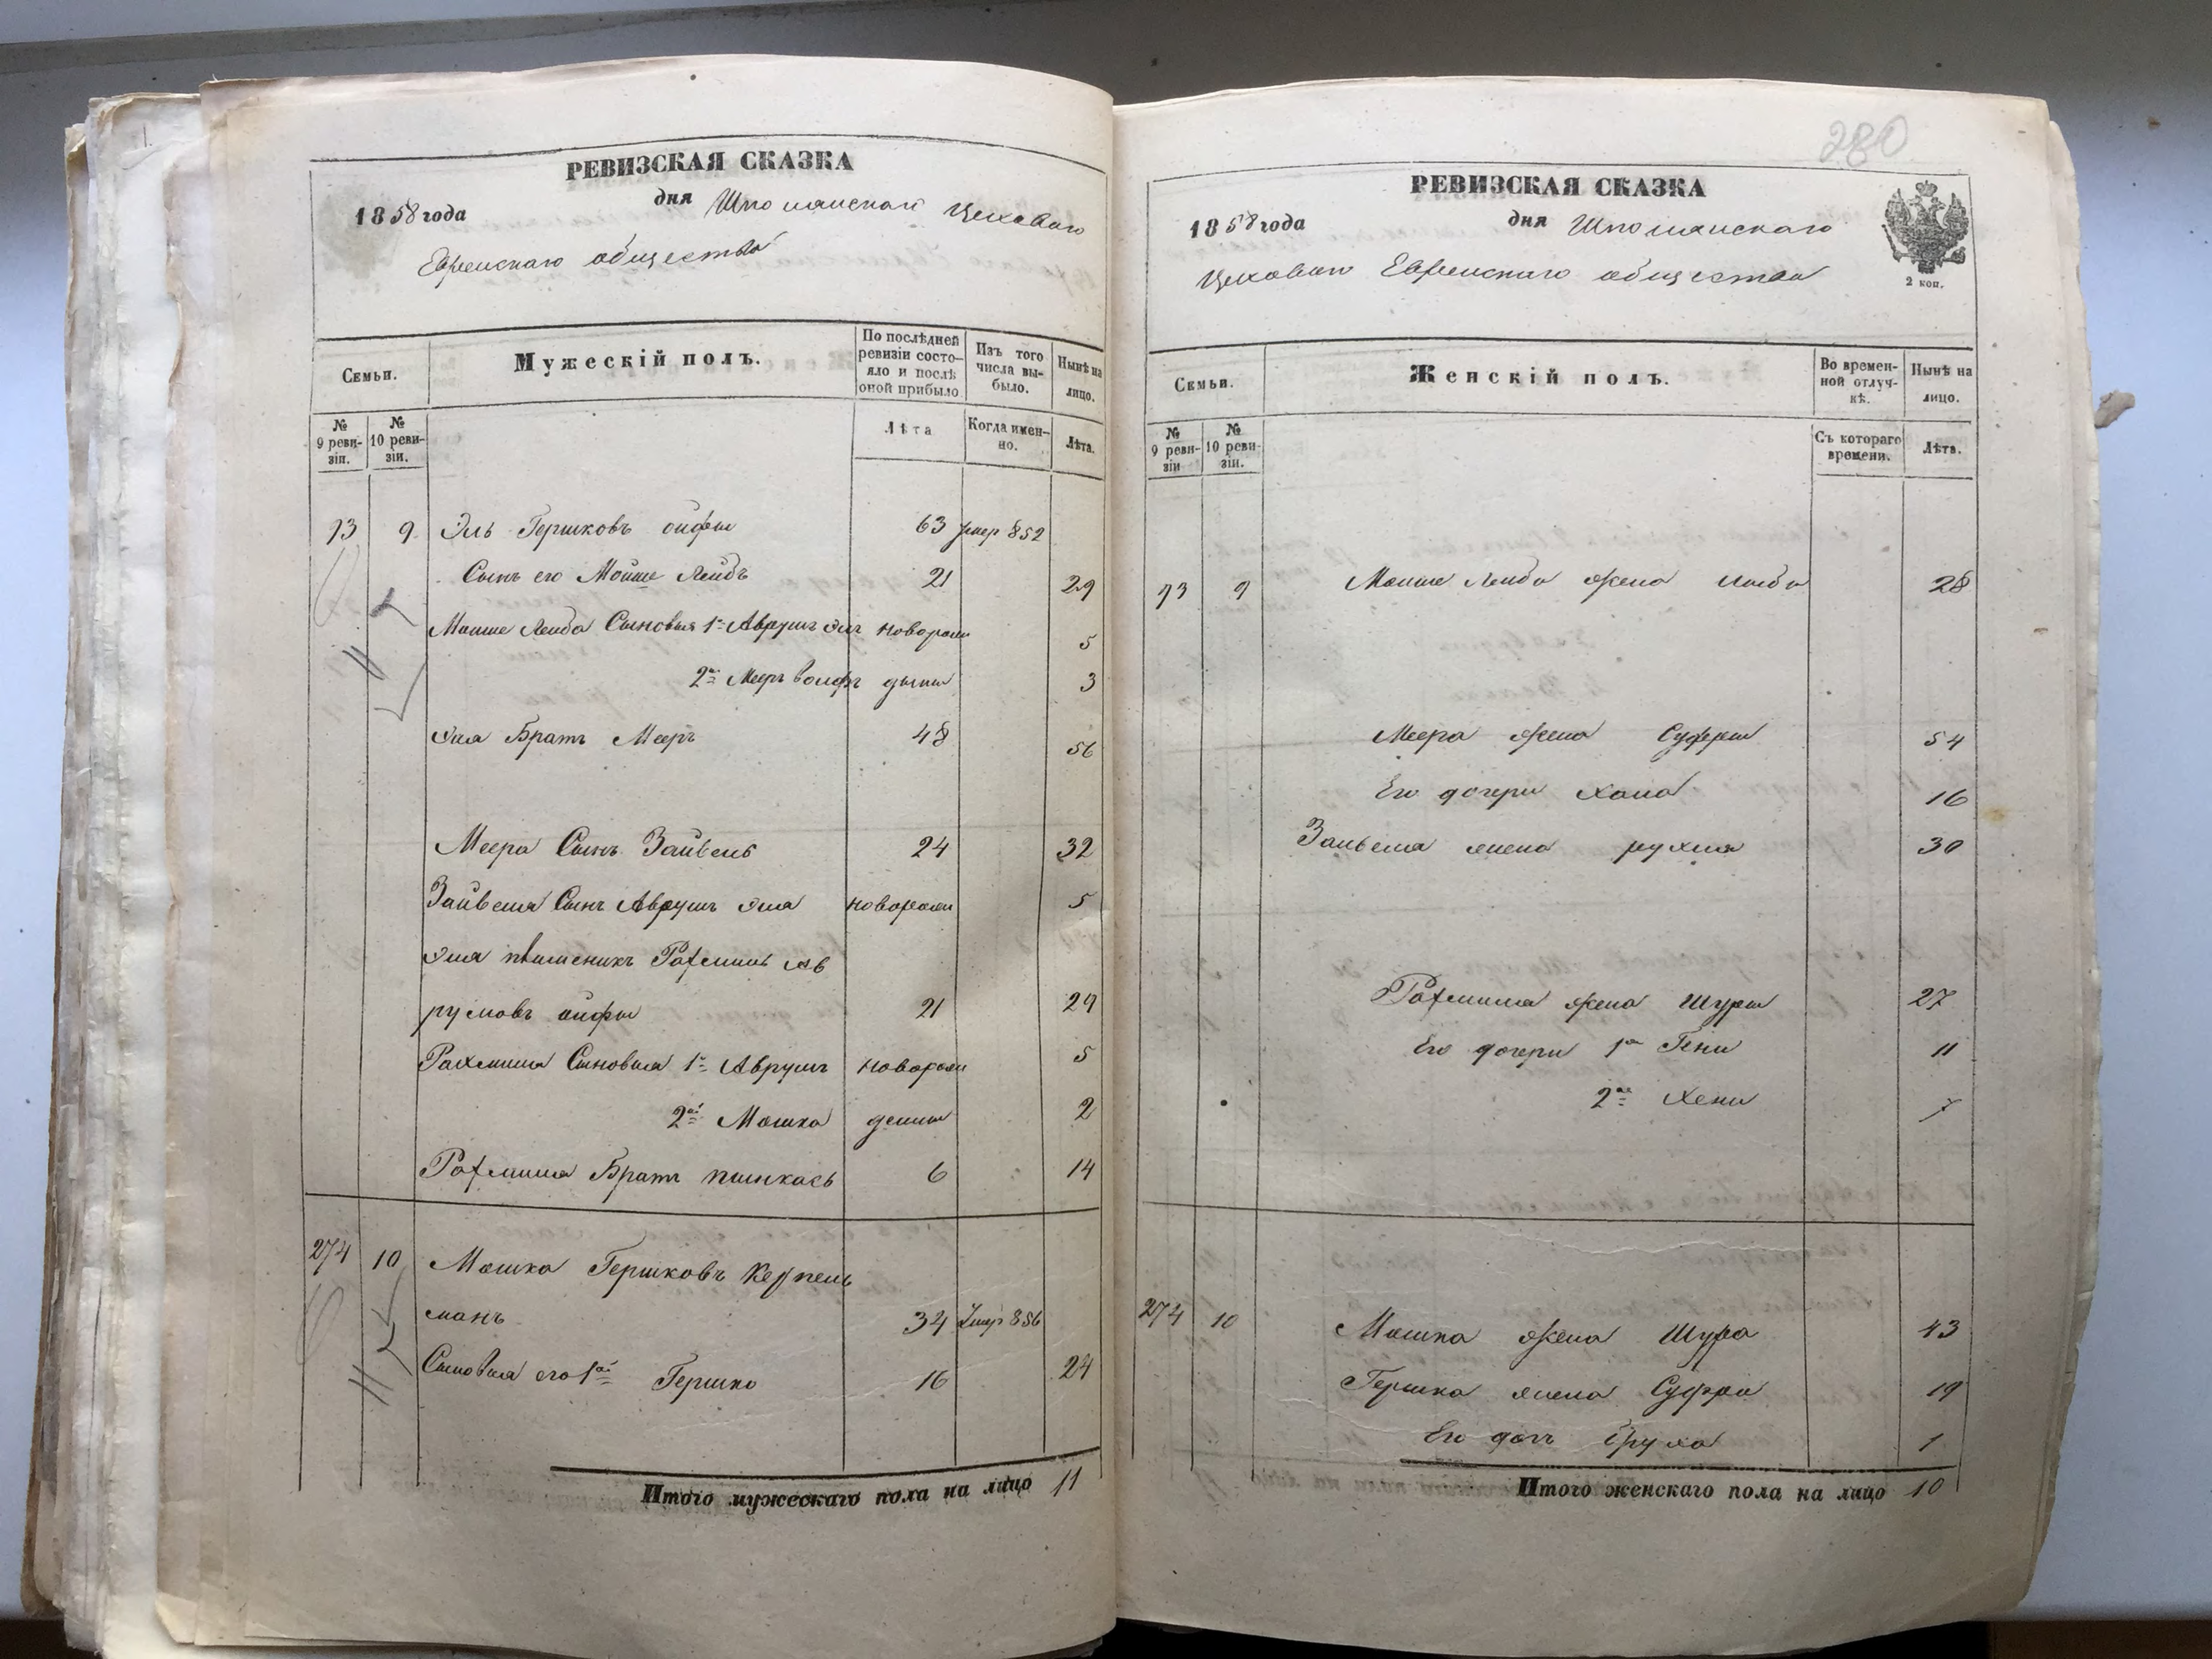 РЕВИЗСКАЯ СКАЗКА
1858 года дня Шполянскаго Цеховаго
Еврейскаго общества
Семьи.
Мужескій полъ.
По послѣдней ревизіи состояло и послѣ оной прибыло.
Изъ того числа выбыло.
Нынѣ на лицо.
№ 9 ревизіи.
№ 10 ревизіи.
Лѣта
Когда именно.
Лѣта.
73 9 Эль Гершковъ 63 умер 852
Сынъ его Мойше Лейбъ 21 29
Мойше Лейба Сыновья 1й Аврумъ Эль новорож 5
2й Мееръ Волфъ дены 3
Эля Братъ Мееръ 48 56
Меера Сынъ Зайвель 24 32
Зайвеля Сынъ Аврумъ Эля новорожи 5
Эля племеникъ Рахмиль Ав
румовъ 21 29
Рахмиля Сыновья 1й Аврумъ новорож 5
2й Мошко дены 2
Рахмиля Братъ Пинкась 6 14
274 10 Мошко Гершковъ
манъ 34 Умер 856
Сыновья его 1й Гершко 16 24
Итого мужескаго пола на лицо 11
280
РЕВИЗСКАЯ СКАЗКА
1858 года дня Шполянскаго
Цеховаго Еврейскаго общества
2 коп.
Семьи.
Женскій полъ.
Во временной отлучкѣ.
Нынѣ на лицо.
№ 9 ревизіи
№ 10 ревизіи.
Съ котораго времени.
Лѣта.
73 9 Мойше Лейба жена 28
Меера жена 54
Его дочери Хана 16
Зайвеля жена Рухля 30
Рахмиля жена Шура 27
Его дочери 1я Гени 11
2я Хени 7
274 10 Мошка жена Шура 43
Гершка жена 19
Его дочь Бруха 1
Итого женскаго пола на лицо 10